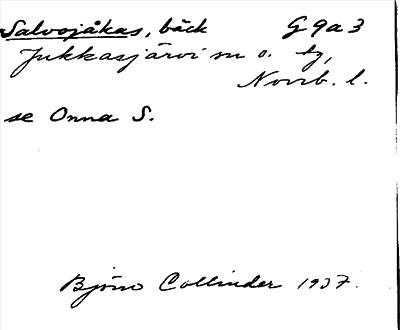 Salvojåkas, bäck G 9 a 3
Jukkasjärvi sn o. tg,
Norrb. l.
se Onna S.
Björn Collinder 1937.